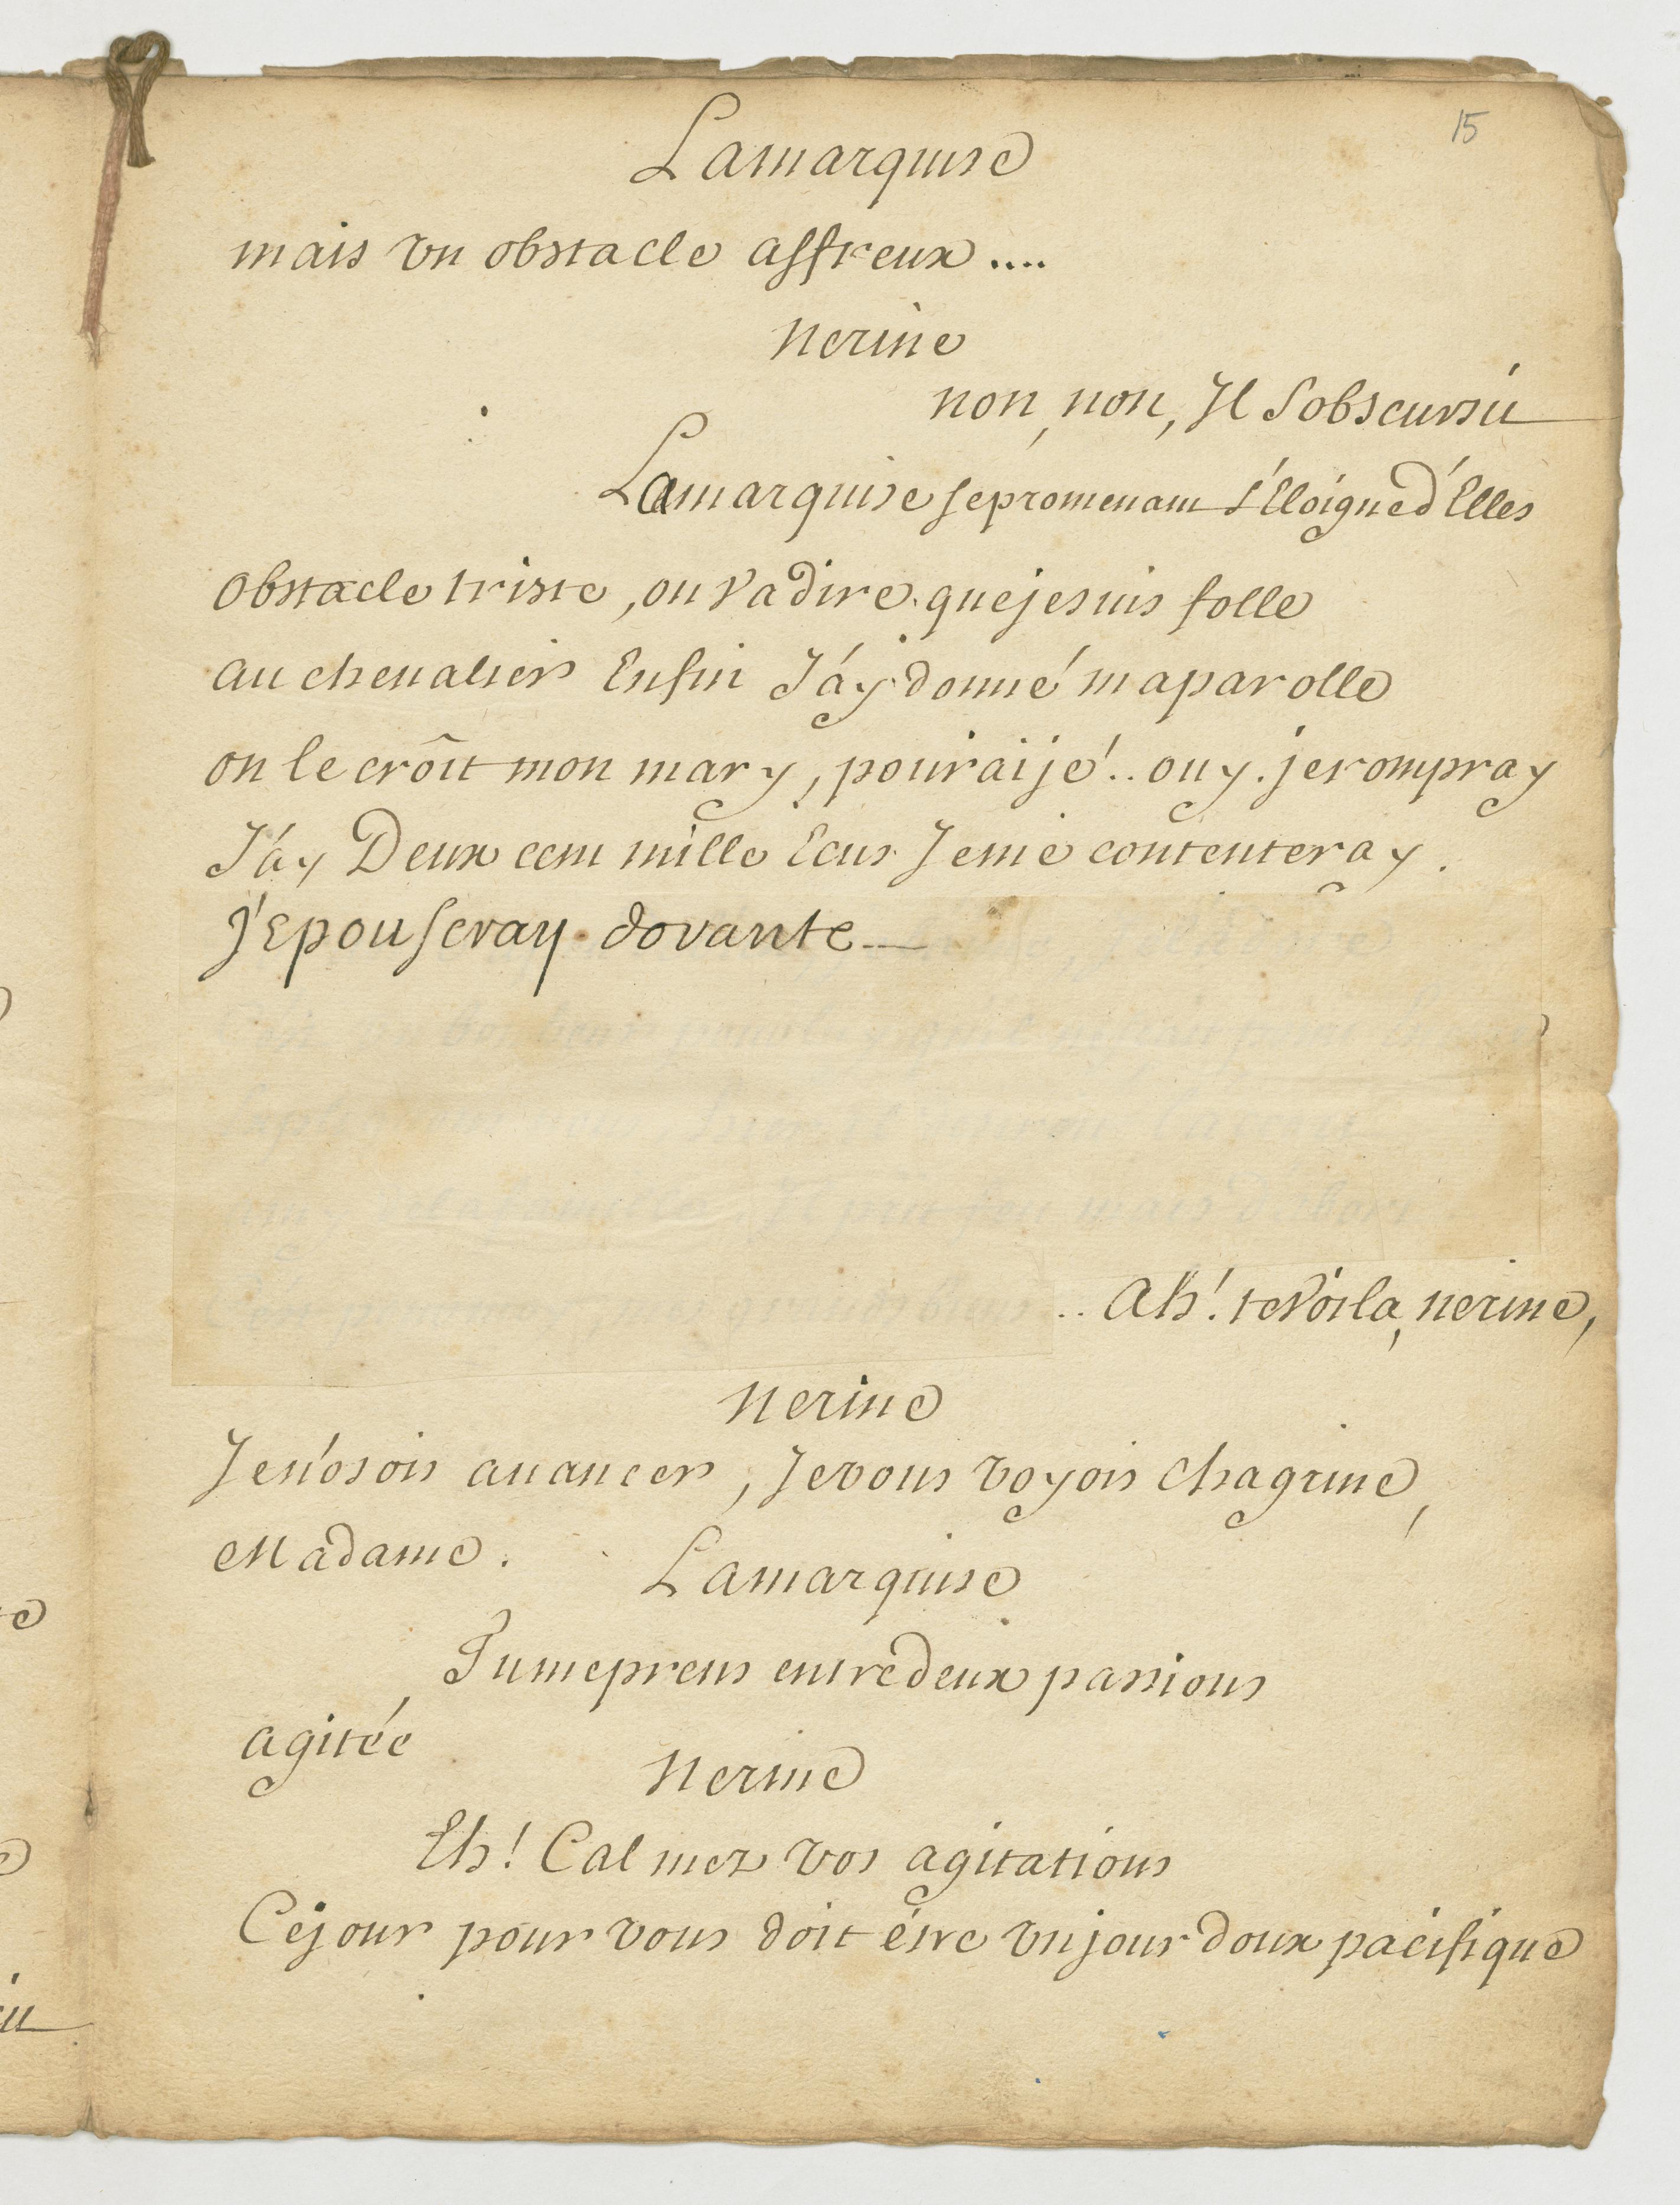 15
Lamarquise
mais vn obstacle affreux....
Nerine
non, non, Il S'obscursit
Lamarquise se promenant s'Eloigne d'Elles
Obstacle triste, on va dire que je suis folle
au chevalier Enfin J'ay donné ma parolle
on le croît mon mary, pourai je!.. ouy. je rompray
J'ay Deux cent mille Ecus Je me contenteray.
J'Epouseray dorante
.. Ah! te Voila, nerine,
Nerine
Je n'osois auancer, Je vous voyois Chagrine,
Madame.
Lamarquise
Tu me prens entre deux passions
agitée
Nerine
Eh! Calmez vos agitations
Ce jour pour vous doit être vn jour doux pacifique